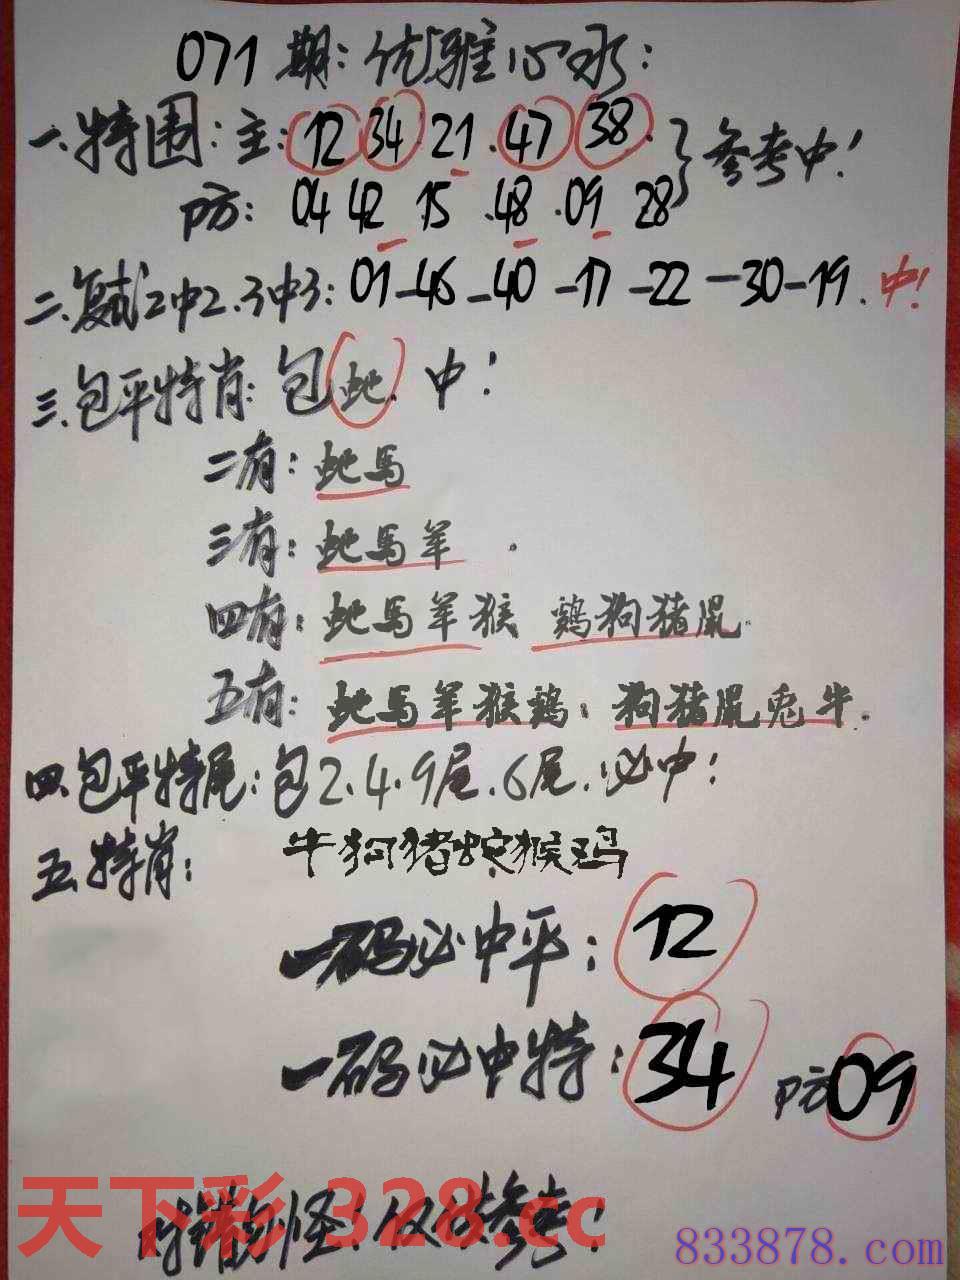 071期:优雅心水:
一.特围:主:12 34 21.47 38.}参考中!
防: 04 42 .15 .48 .09 28
二.复式2中2.3中3:01-46-40-17-22-30-19.中!
三.包平特肖:包蛇.中!
二有:蛇馬
三有:蛇馬羊.
四有:蛇馬羊猴 鷄狗猪鼠.
五有:蛇馬羊猴鷄;狗猪鼠兎牛.
四.包平特尾:包2.4.9尾.6尾.必中!
五.特肖:牛狗猪蛇猴鸡
一码必中平:12
一码必中特:34 防09
天下彩 328.cc
仅供参考!
833878.com